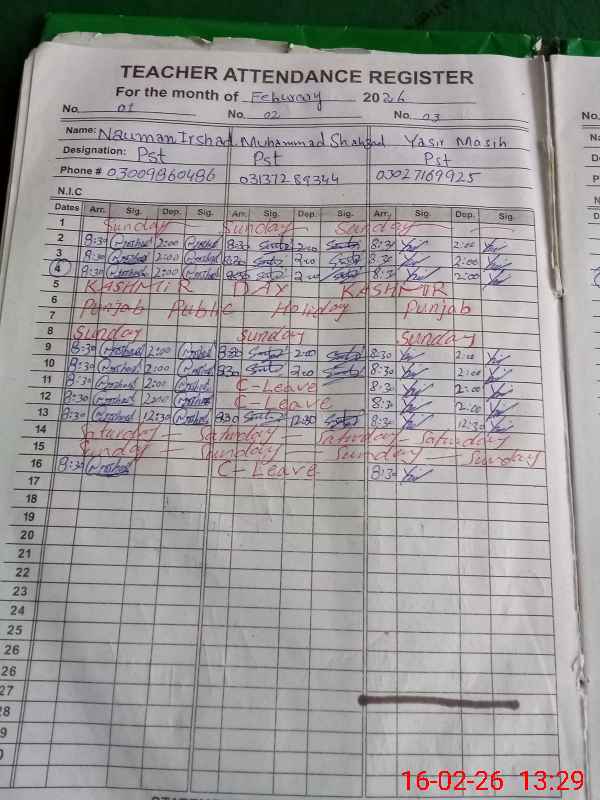 TEACHER ATTENDANCE REGISTER
For the month of February 2026
No. 01 No. 02 No. 03
Name: Nauman Irshad Muhammad Shahzad Yasir Masih
Designation: Pst Pst Pst
Phone # 03009860486 03137289344 03027169925
N.I.C
Dates Arr. Sig. Dep. Sig. Arr. Sig. Dep. Sig. Arr. Sig. Dep. Sig.
1 Sunday Sunday Sunday
2 8:30 2:00 8:30 2:00 8:30 2:00
3 8:30 2:00 8:30 2:00 8:30 2:00
4 8:30 2:00 8:30 2:00 8:30 2:00
5 KASHMIR DAY KASHMIR
6 Punjab Public Holiday Punjab
7
8 Sunday Sunday Sunday
9 8:30 2:00 8:30 2:00 8:30 2:00
10 8:30 2:00 8:30 2:00 8:30 2:00
11 8:30 2:00 C-Leave 8:30 2:00
12 8:30 2:00 C-Leave 8:30 2:00
13 8:30 12:30 8:30 12:30 8:30 12:30
14 Saturday Saturday Saturday Saturday
15 Sunday Sunday Sunday Sunday
16 8:30 C-Leave 8:30
17
18
19
20
21
22
23
24
25
26
26
27
28
16-02-26 13:29